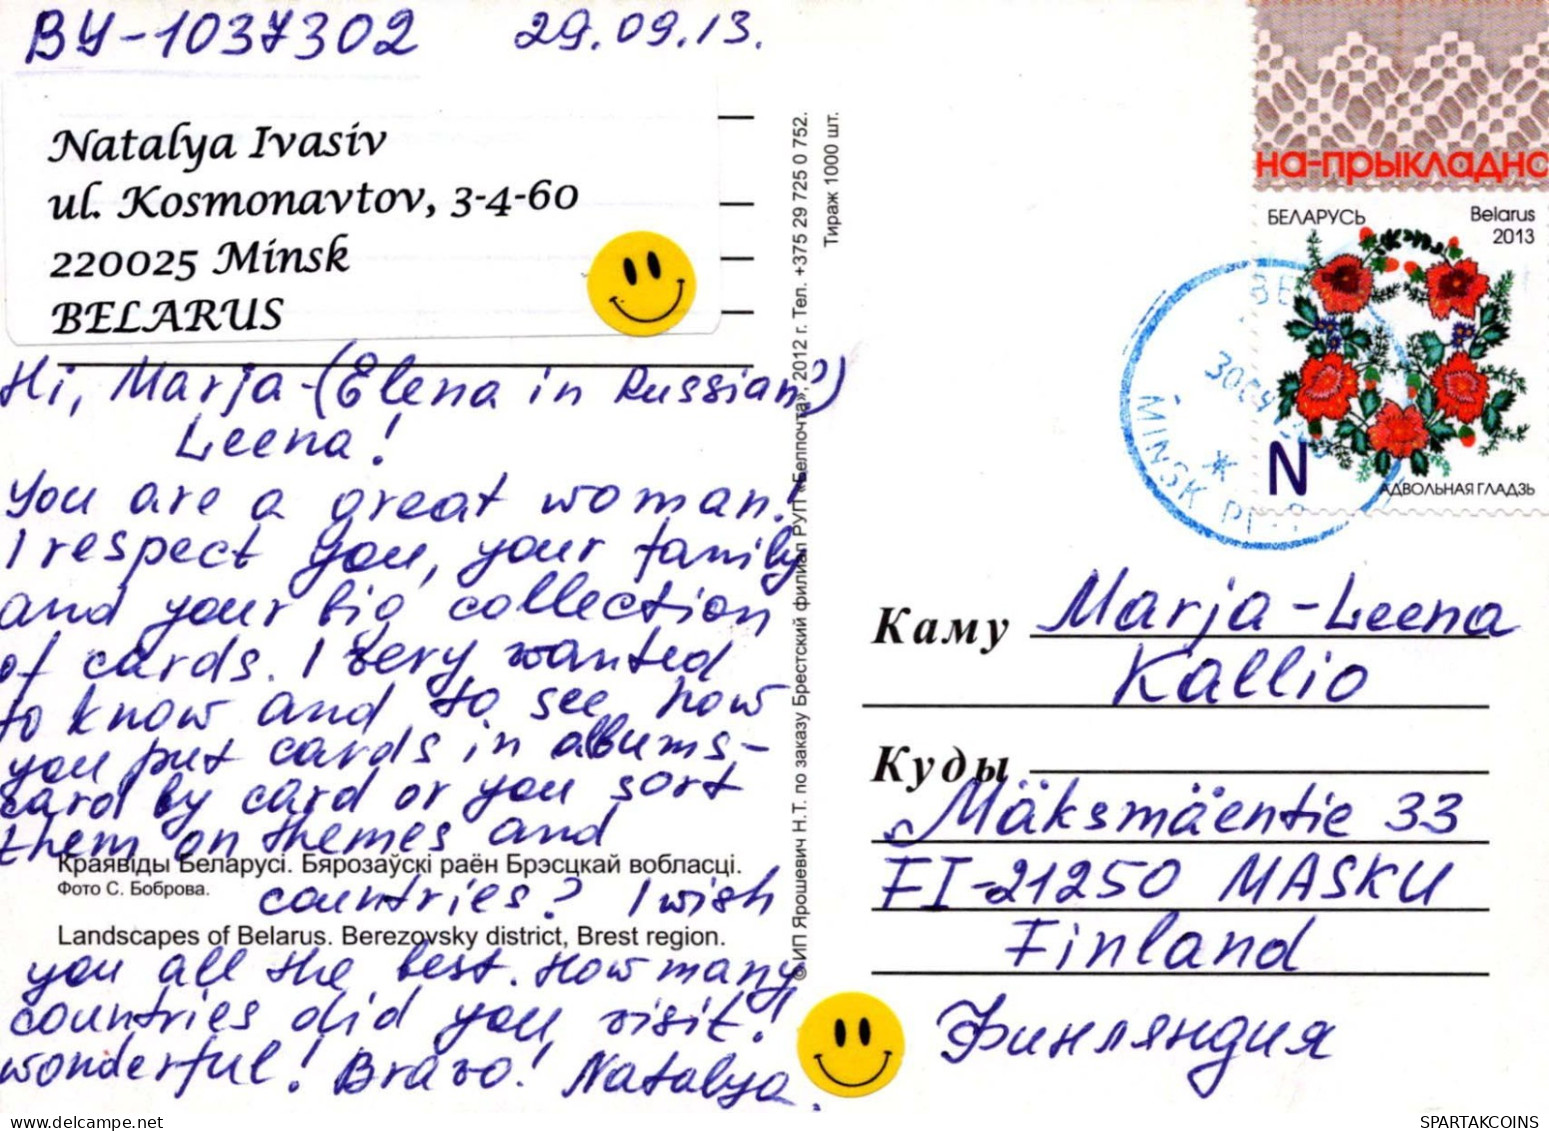 BY-1037302 29.09.13.
Natalya Ivasiv
ul. Kosmonavtov, 3-4-60
220025 Minsk
BELARUS
Hi, Marja-(Elena in Russian?)
Leena!
You are a great woman!
I respect you, your family
and your big collection
of cards. I very wanted
to know and to see how
you put cards in albums-
card by card or you sort
them on themes and
Краявіды Беларусі. Бярозаўскі раён Брэсцкай вобласці.
Фото С. Боброва.
countries? I wish
Landscapes of Belarus. Berezovsky district, Brest region.
you all the best. How many
countries did you visit!
wonderful! Bravo! Natalya.
© ИП Ярошевич Н.Т. по заказу Брестский филиал РУП «Белпочта», 2012 г. Тел. +375 29 725 0 752.
Тираж 1000 шт.
на-прыкладно
БЕЛАРУСЬ Belarus
2013
N
АДВОЛЬНАЯ ГЛАДЗЬ
MINSK
Каму Marja-Leena
Kallio
Куды
Mäksmäentie 33
FI-21250 MASKU
Finland
Финляндия
www.delcampe.net
SPARTAKCOINS